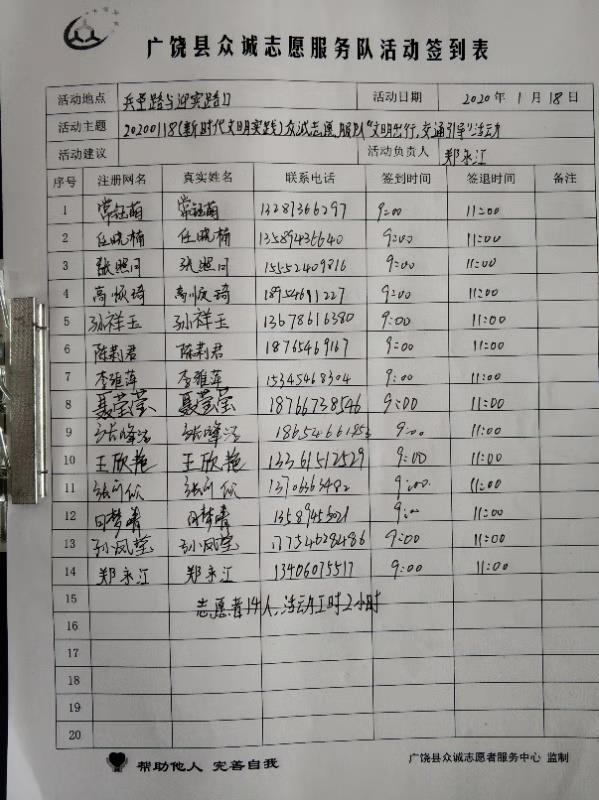 广饶县众诚志愿服务队活动签到表
活动地点 兵圣路与迎宾路口 活动日期 2020年1月18日
活动主题 20200118(新时代文明实践)众诚志愿服队"文明出行,交通引导"活动
活动建议 活动负责人 郑永江
序号 注册网名 真实姓名 联系电话 签到时间 签退时间 备注
1 常钰萌 常钰萌 13287366297 9:00 11:00
2 任晓楠 任晓楠 13589436640 9:00 11:00
3 张照问 张照问 15552409816 9:00 11:00
4 高顺琦 高顺琦 18954691227 9:00 11:00
5 孙祥玉 孙祥玉 13678616380 9:00 11:00
6 陈莉君 陈莉君 18765469167 9:00 11:00
7 李雅萍 李雅萍 15345468304 9:00 11:00
8 聂莹莹 聂莹莹 18766738546 9:00 11:00
9 9:00 11:00
10 王欣艳 王欣艳 13361512529 9:00 11:00
11 13706363482 9:00 11:00
12 田梦青 田梦青 9:00 11:00
13 孙凤莹 孙凤莹 17754628486 9:00 11:00
14 郑永江 郑永江 13406075517 9:00 11:00
15 志愿者14人,活动工时2小时
16
17
18
19
20
帮助他人 完善自我 广饶县众诚志愿者服务中心 监制